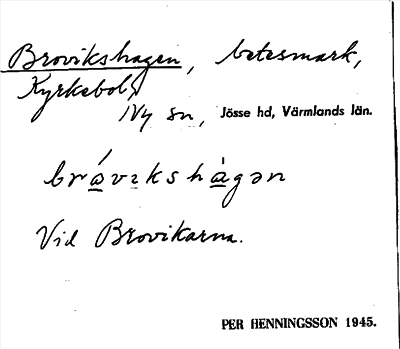 Brovikshagen, betesmark,
Kyrkebol,
Ny sn, Jösse hd, Värmlands län.
bråvikshågən
Vid Brovikarna.
PER HENNINGSSON 1945.